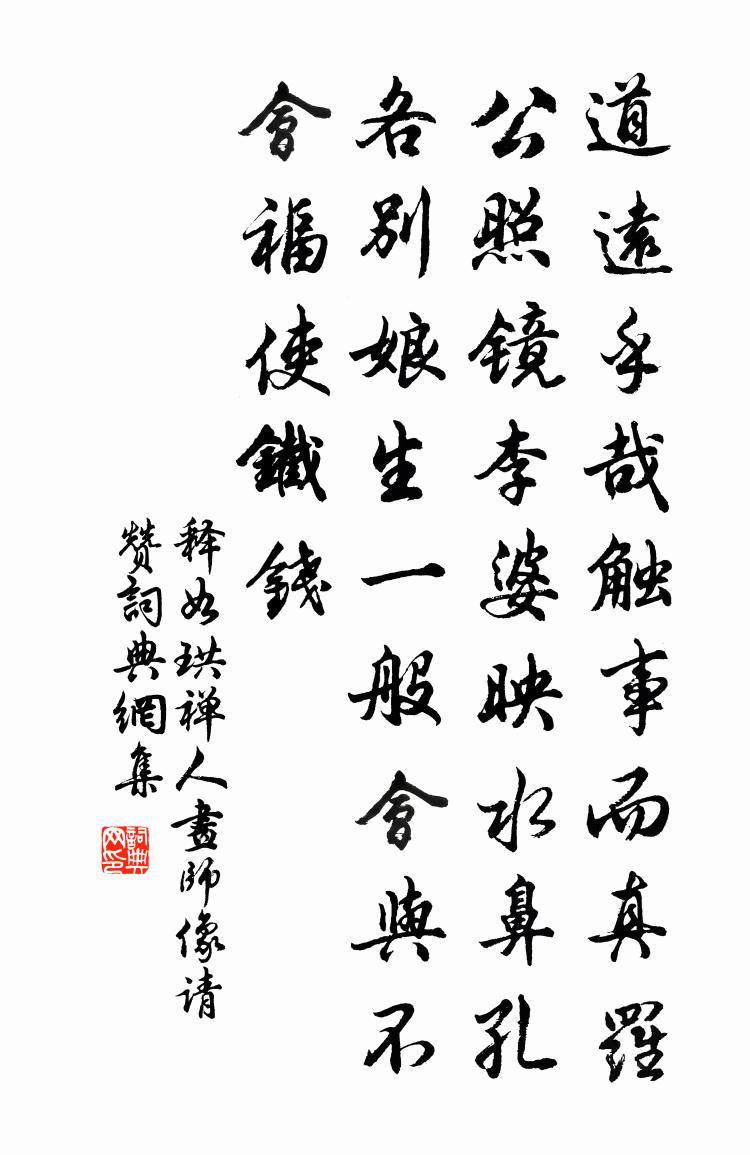 道遠乎哉触事而真羅
公照镜李婆映水鼻孔
各别娘生一般會與不
會福使鐵錢
释如珙禅人畫師像请
赞詞典網集
詞典网印